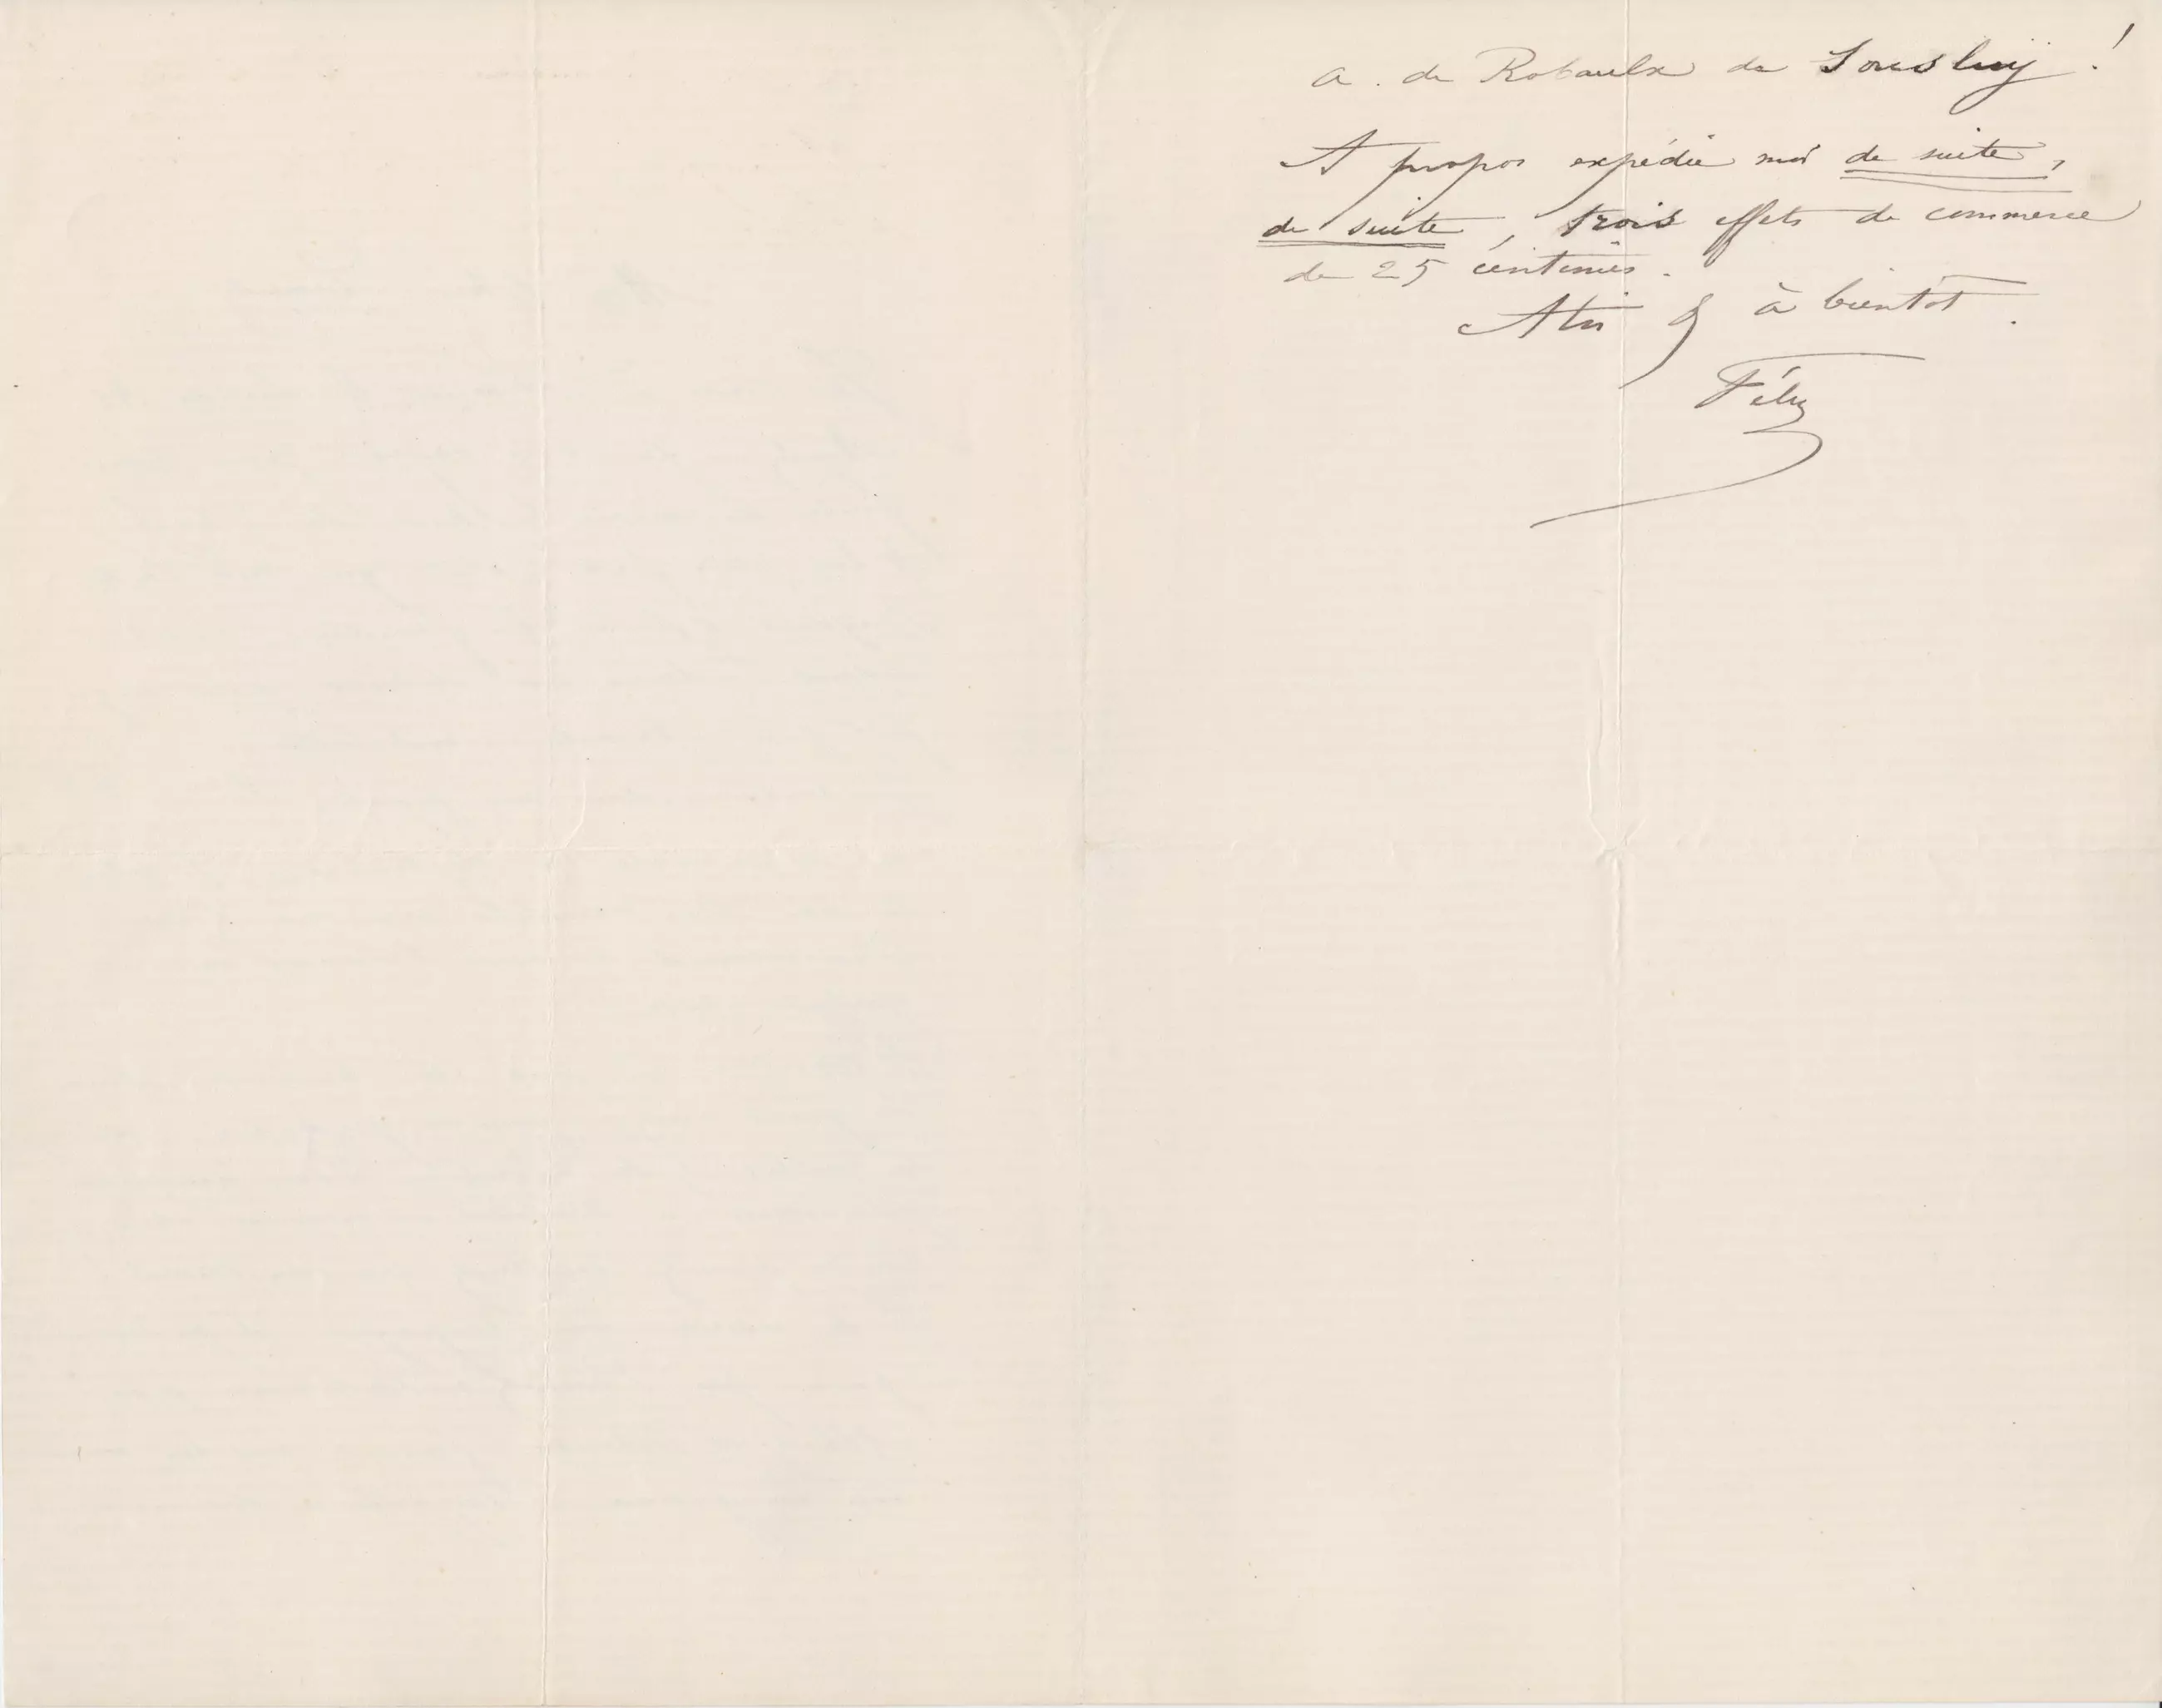 a. de Robaulx de Soumoy !
A propos expédie moi de suite,
de suite, trois effets de commerce
de 25 centimes.
à toi & à bientôt.
Fély